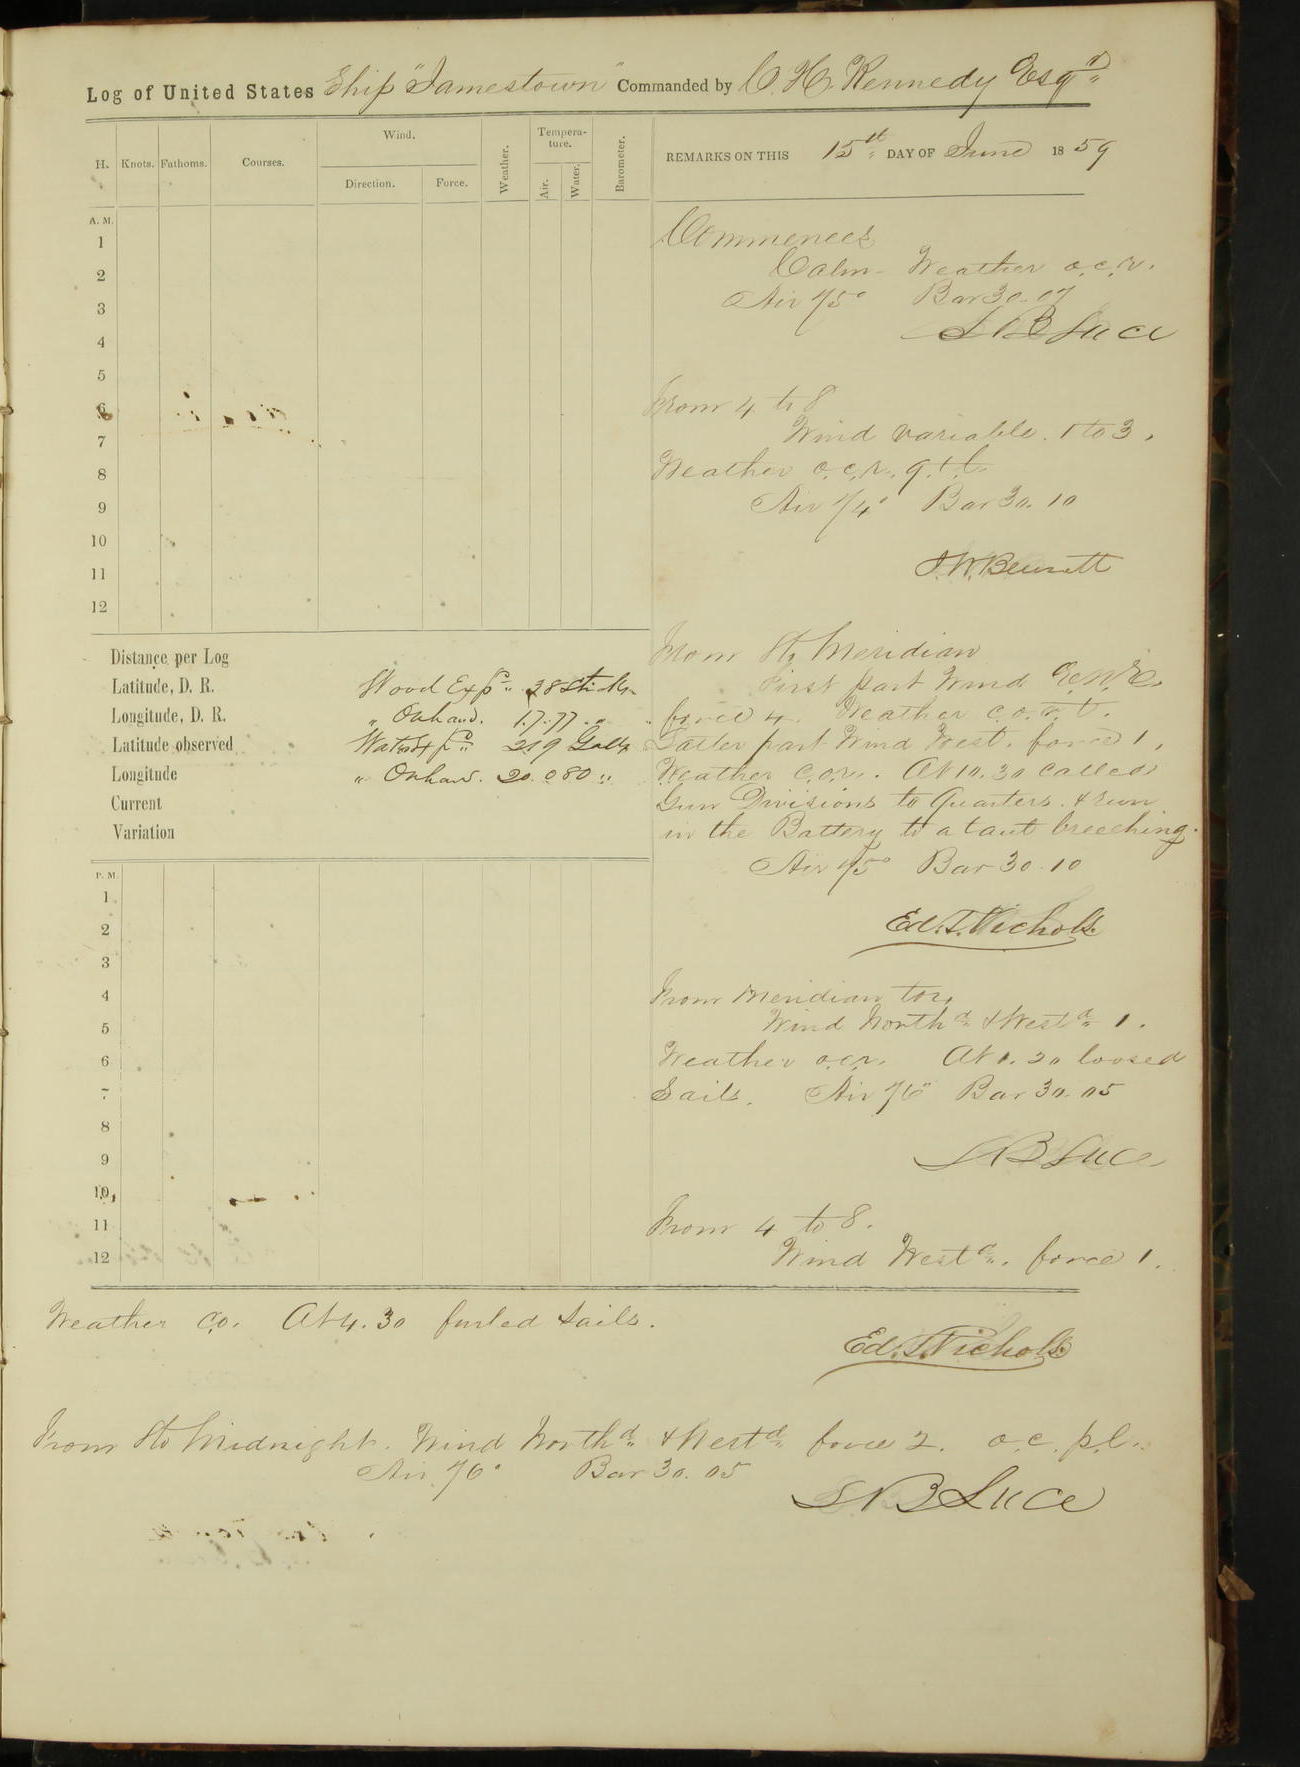 Log of United States Ship "Jamestown" Commanded by C. H. Kennedy Esqr
H. Knots. Fathoms. Courses. Wind. Direction. Force. Weather. Tempera-ture. Air. Water. Barometer.
REMARKS ON THIS 15th DAY OF June 1859
A. M.
1
2
3
4
5
6
7
8
9
10
11
12
Commences
Calm - Weather o.c.r.
Air 75° Bar 30.07
S B Luce
From 4 to 8
Wind variable. 1 to 3.
Weather o.c.r. q.t.l.
Air 74° Bar 30.10
J. W. Bennett
From 8 to Meridian
First part Wind E.N.E.
force 4. Weather c.o.r.t.
Latter part Wind West. force 1,
Weather c.o.r. At 10.30 called
Gun Divisions to Quarters. & run
in the Battery to a taut breeching.
Air 75° Bar 30.10
Ed. T. Nichols
Distance per Log
Latitude, D. R.
Longitude, D. R.
Latitude observed
Longitude
Current
Variation
Wood Expd 28 Sticks
" On hand. 1.7.77 " "
Water Expd 219 Galls
" On hand. 20.080 "
P. M.
1
2
3
4
5
6
7
8
9
10
11
12
From Meridian to 4
Wind Northd & Westd 1.
Weather o.c.r. At 1.20 loosed
Sails. Air 76° Bar 30.05
S B Luce
From 4 to 8.
Wind Westd. force 1.
Weather c.o. At 4.30 furled sails.
Ed. T. Nichols
From 8 to Midnight. Wind Northd & Westd force 2. o.c.p.l.
Air 76° Bar 30.05
S B Luce